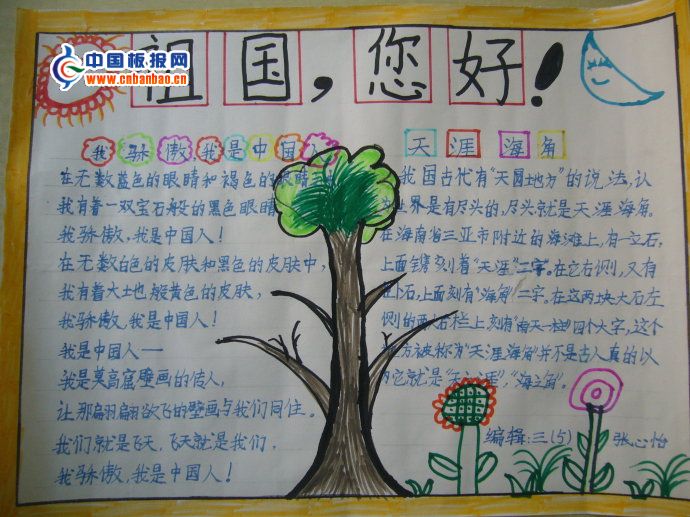 中国板报网
www.cnbanbao.cn
祖国,您好!
我骄傲,我是中国人
在无数蓝色的眼睛和褐色的眼睛
我有着一双宝石般的黑色眼睛
我骄傲,我是中国人!
在无数白色的皮肤和黑色的皮肤中,
我有着大土也般黄色的皮肤,
我骄傲,我是中国人!
我是中国人—
我是莫高窟壁画的传人,
让那翩翩欲飞的壁画与我们同住。
我们就是飞天,飞天就是我们,
我骄傲,我是中国人!
天涯海角
我国古代有"天圆地方"的说法,认
界是有尽头的,尽头就是天涯海角。
在海南省三亚市附近的海滩上,有一立石,
上面镌刻着"天涯"二字。在它右侧,又有
卧石,上面刻有"海角"二字。在这两块大石左
侧的石栏上,刻有"南天一柱"四个大字,这个
方被称为"天涯海角"并不是古人真的以
它就是"天涯","海角"。
编辑:三(5) 张心怡